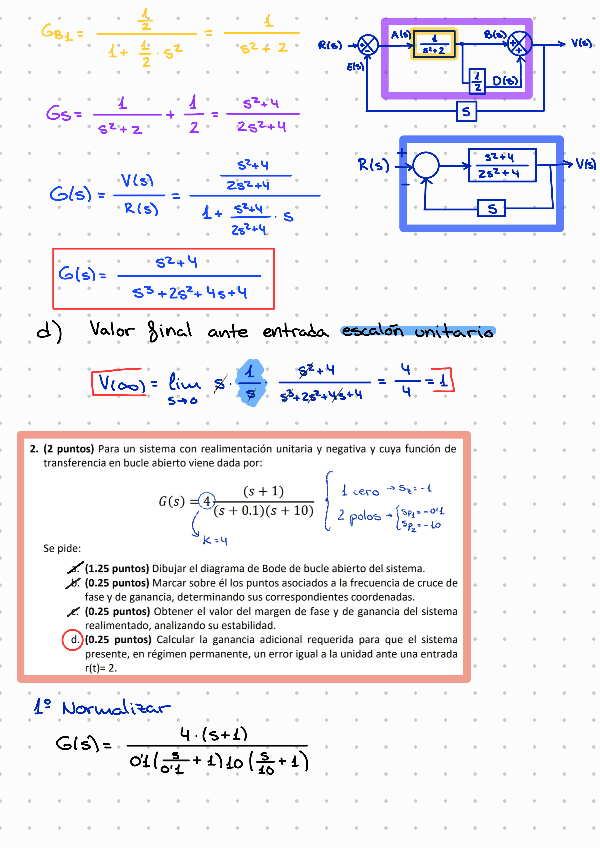 G_B1 = (1/2) / (1 + 1/2 · s²) = 1 / (s² + 2)
R(s) A(s) 1/(s²+2) B(s) V(s)
E(s) 1/2 D(s)
S
G_S = 1/(s²+2) + 1/2 = (s²+4)/(2s²+4)
R(s) + − (s²+4)/(2s²+4) V(s)
S
G(s) = V(s)/R(s) = ((s²+4)/(2s²+4)) / (1 + (s²+4)/(2s²+4) · s)
G(s) = (s²+4)/(s³+2s²+4s+4)
d) Valor final ante entrada escalón unitario
V(∞) = lim s→0 s · 1/s · (s²+4)/(s³+2s²+4s+4) = 4/4 = 1
2. (2 puntos) Para un sistema con realimentación unitaria y negativa y cuya función de
transferencia en bucle abierto viene dada por:
G(s) = 4 (s + 1)/((s + 0.1)(s + 10))
1 cero → s_z = -1
2 polos → s_p1 = -0'1
s_p2 = -10
K=4
Se pide:
a. (1.25 puntos) Dibujar el diagrama de Bode de bucle abierto del sistema.
b. (0.25 puntos) Marcar sobre él los puntos asociados a la frecuencia de cruce de
fase y de ganancia, determinando sus correspondientes coordenadas.
c. (0.25 puntos) Obtener el valor del margen de fase y de ganancia del sistema
realimentado, analizando su estabilidad.
d. (0.25 puntos) Calcular la ganancia adicional requerida para que el sistema
presente, en régimen permanente, un error igual a la unidad ante una entrada
r(t)= 2.
1º Normalizar
G(s) = 4·(s+1) / (0'1(s/0'1 + 1)10(s/10 + 1))